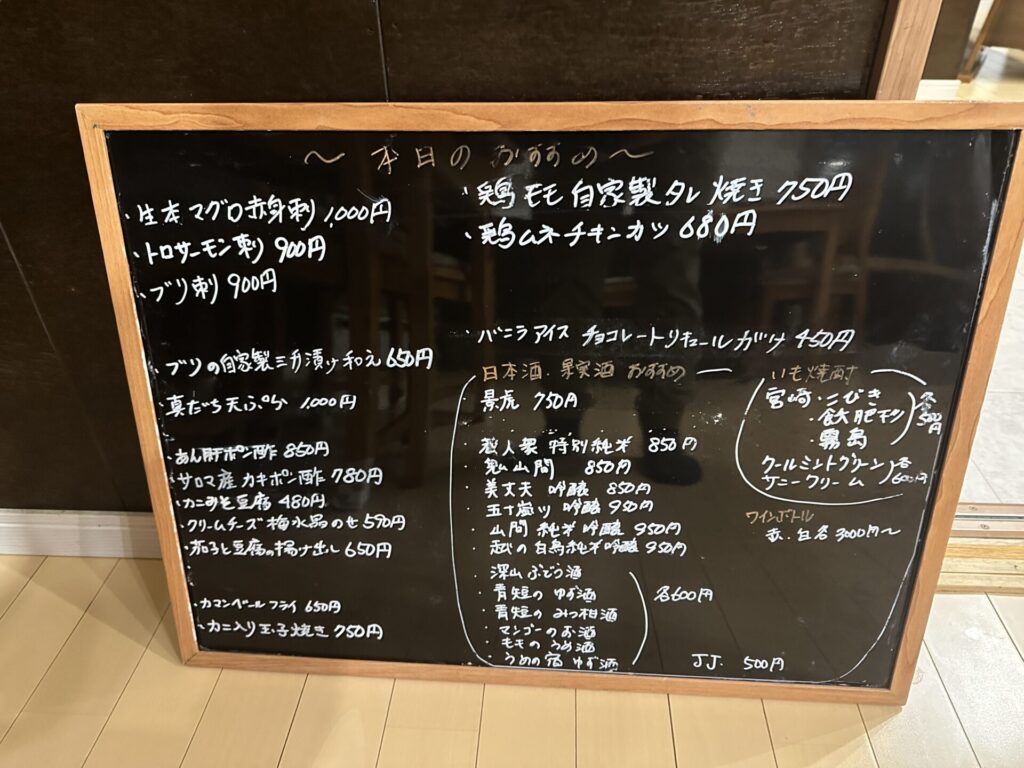 ～ 本日のおすすめ～
・生本マグロ赤身刺 1,000円
・トロサーモン刺 900円
・ブリ刺 900円
・ブリの自家製三升漬け和え 650円
・真だち天ぷら 1,000円
・あん肝ポン酢 850円
・サロマ産カキポン酢 780円
・カニみそ豆腐 480円
・クリームチーズ梅水晶のせ 590円
・茄子と豆腐の揚げ出し 650円
・カマンベールフライ 650円
・カニ入り玉子焼き 750円
・鶏モモ自家製タレ焼き 750円
・鶏ムネチキンカツ 680円
・バニラアイス チョコレートリキュールがけ 450円
日本酒・果実酒 おすすめ
・景虎 750円
・越人衆 特別純米 850円
・鬼山間 850円
・美丈夫 吟醸 850円
・五十嵐川 吟醸 950円
・山間 純米吟醸 950円
・越の白鳥 純米吟醸 950円
・深山ぶどう酒
・青短の ゆず酒
・青短の みつ柑酒
・マンゴーのお酒
・モモのうめ酒
・うめの宿 ゆず酒
各600円
いも焼酎
宮崎・こびき
・飫肥杉
・霧島
各500円
クールミントグリーン
サニークリーム
各600円
ワインボトル
赤、白各3000円～
JJ. 500円